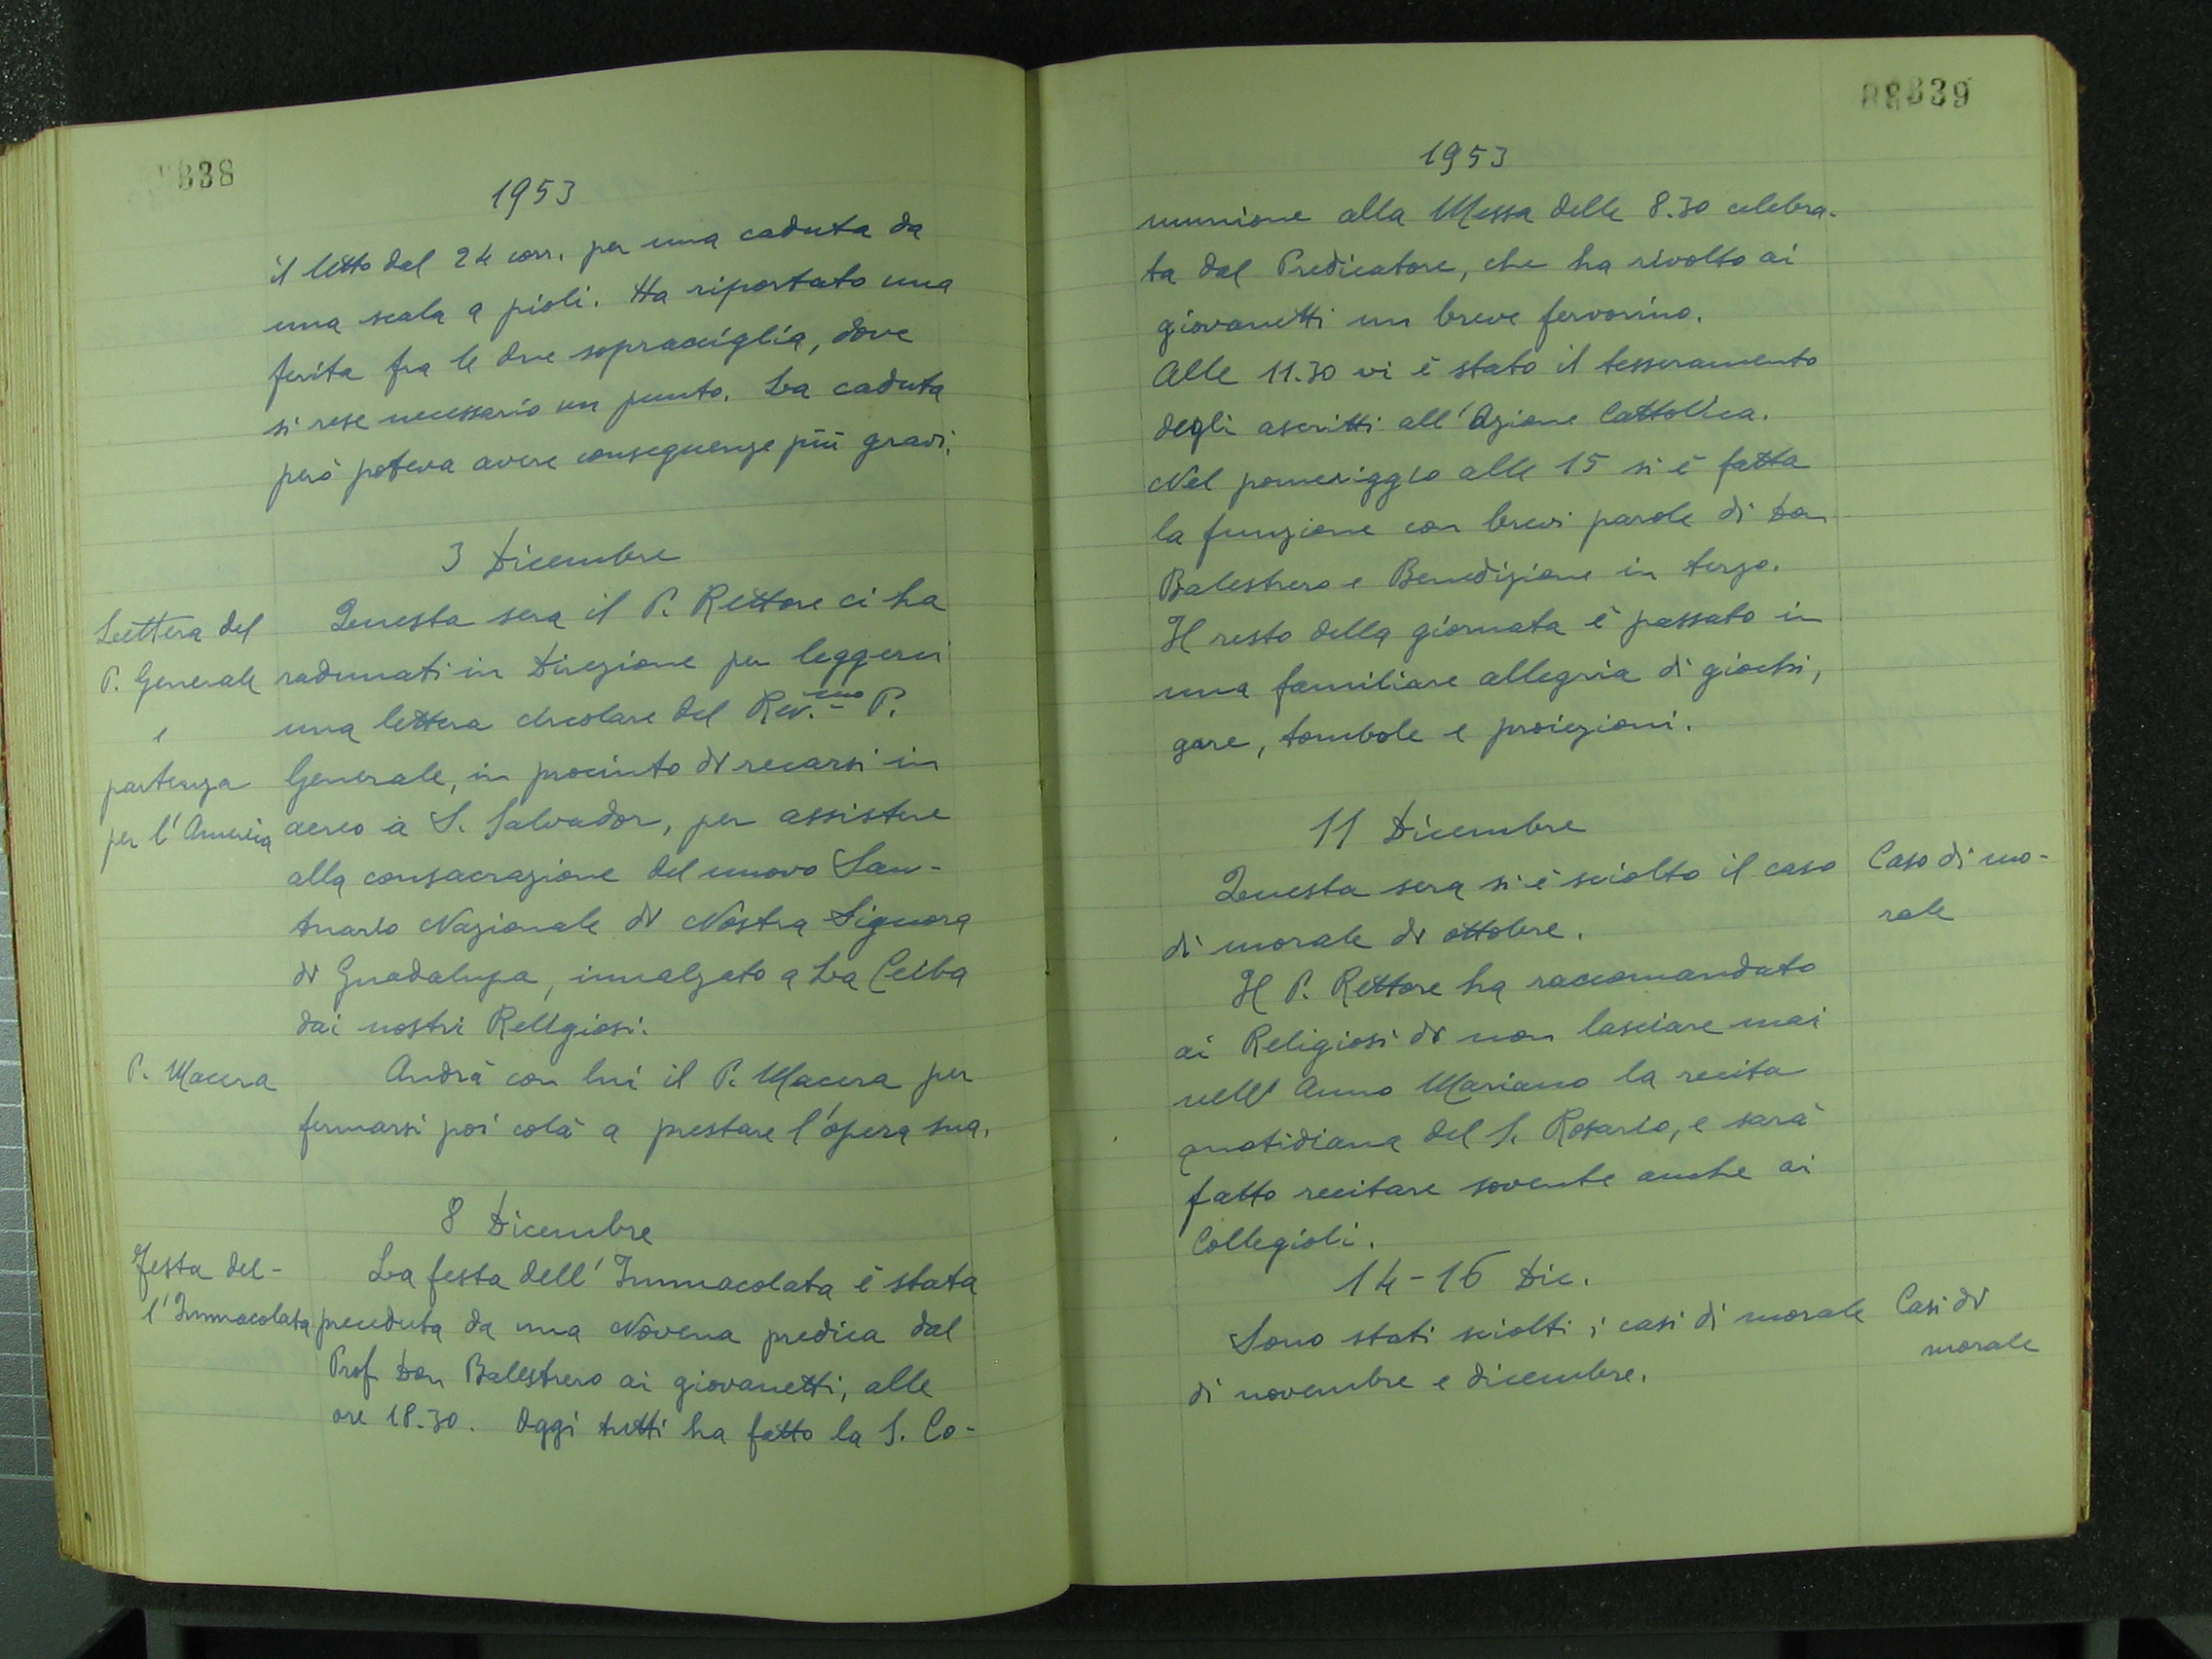 338
1953
il letto dal 24 corr. per una caduta da
una scala a pioli. Ha riportato una
ferita fra le due sopracciglia, dove
si rese necessario un punto. La caduta
però poteva avere conseguenze più gravi.
3 Dicembre
Lettera del
P. Generale
e
partenza
per l'America
Questa sera il P. Rettore ci ha
radunati in Direzione per leggerci
una lettera circolare del Rev.mo P.
Generale, in procinto di recarsi in
aereo a S. Salvador, per assistere
alla consacrazione del nuovo San-
tuario Nazionale di Nostra Signora
di Guadalupa, innalzato a La Ceiba
dai nostri Religiosi.
P. Macera
Andrà con lui il P. Macera per
fermarsi poi colà a prestare l'opera sua.
8 Dicembre
Festa del-
l'Immacolata
La festa dell'Immacolata è stata
preceduta da una Novena predica dal
Prof. Don Balestrero ai giovanetti, alle
ore 18.30. Oggi tutti ha fatto la S. Co-
339
1953
munione alla Messa delle 8.30 celebra-
ta dal Predicatore, che ha rivolto ai
giovanetti un breve fervorino.
Alle 11.30 vi è stato il tesseramento
degli ascritti all'Azione Cattolica.
Nel pomeriggio alle 15 si è fatta
la funzione con brevi parole di Don
Balestrero e Benedizione in terzo.
Il resto della giornata è passato in
una familiare allegria di giochi,
gare, tombole e proiezioni.
11 Dicembre
Questa sera si è sciolto il caso
di morale di ottobre.
Caso di mo-
rale
Il P. Rettore ha raccomandato
ai Religiosi di non lasciare mai
nell'Anno Mariano la recita
quotidiana del S. Rosario, e sarà
fatto recitare sovente anche ai
Collegioli.
14-16 Dic.
Sono stati sciolti i casi di morale
di novembre e dicembre.
Casi di
morale